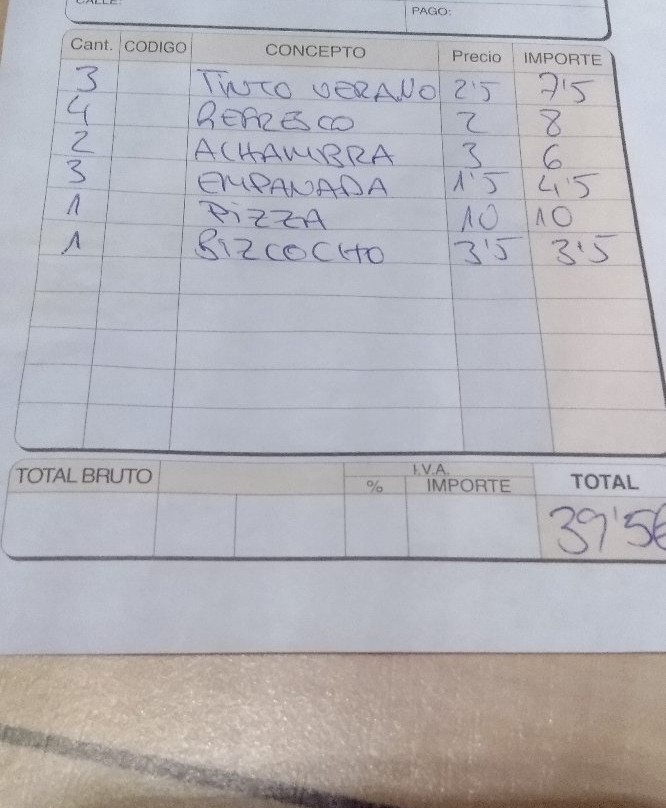 PAGO:
Cant. CODIGO CONCEPTO Precio IMPORTE
3 TINTO VERANO 2'5 7'5
4 REFRESCO 2 8
2 ALHAMBRA 3 6
3 EMPANADA 1'5 4'5
1 PIZZA 10 10
1 BIZCOCHO 3'5 3'5
TOTAL BRUTO % I.V.A. IMPORTE TOTAL
39'5